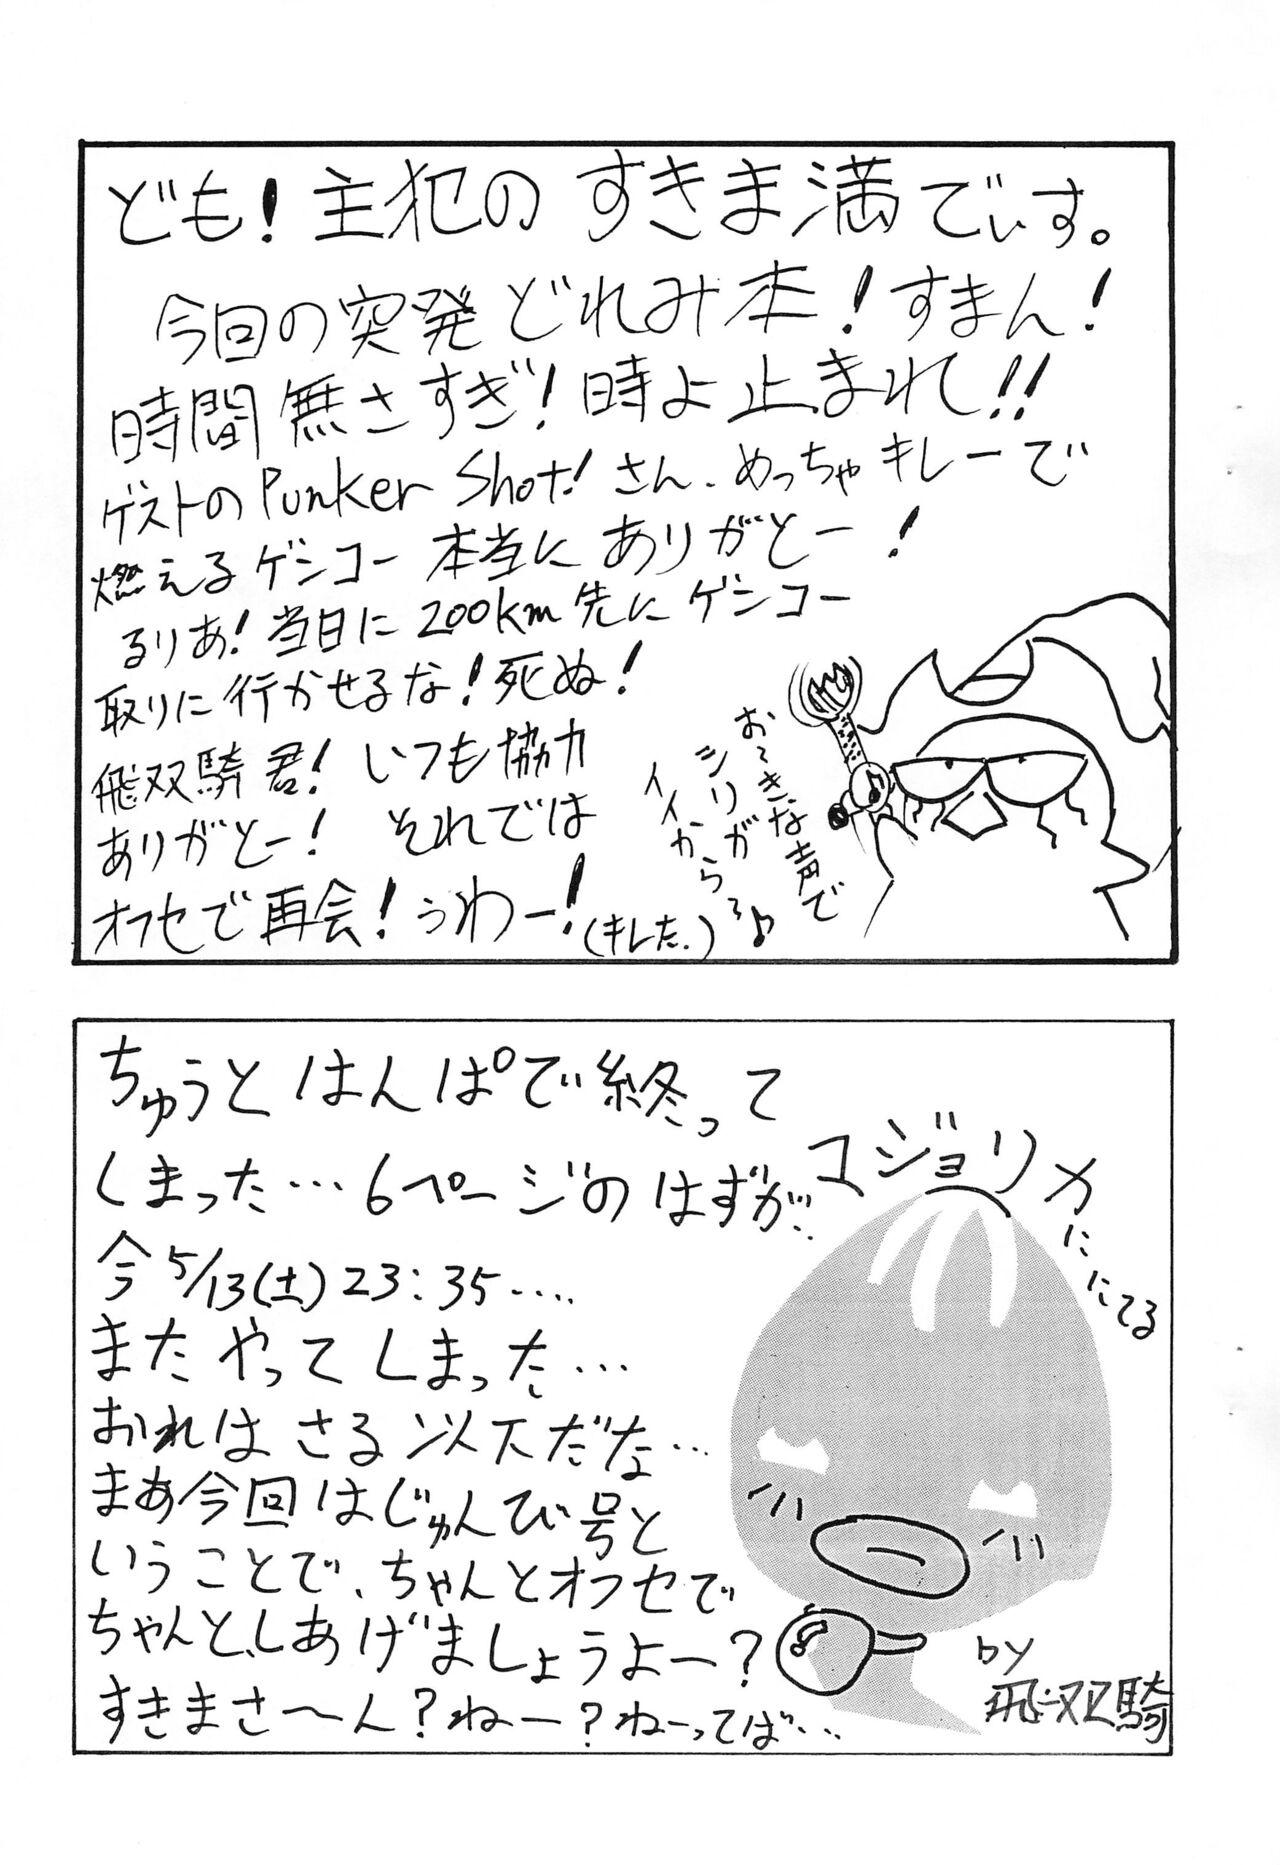 ども!主犯のすきま満でぃす。
今回の突発どれみ本!すまん!
時間無さすぎ!時よ止まれ!!
ゲストのPunker Shot!さん、めっちゃキレーで
燃えるゲンコー本当にありがとー!
るりあ!当日に200km先にゲンコー
取りに行かせるな!死ぬ!
飛双騎君!いつも協力
ありがとー!それでは
オフセで再会!うわー!(キレた.)
おっきな声で
シリガ
イイからろ♪
ちゅうとはんぱで終って
しまった…6ページのはずが…
今5/13(土)23:35....
またやってしまった…
おれはさる以下だな…
まあ今回はじゅんび号と
いうことで、ちゃんとオフセで
ちゃんと、しあげましょうよー?
すきまさ〜ん?ねー?ねーってば…
コジョリカににてる
by
飛双騎